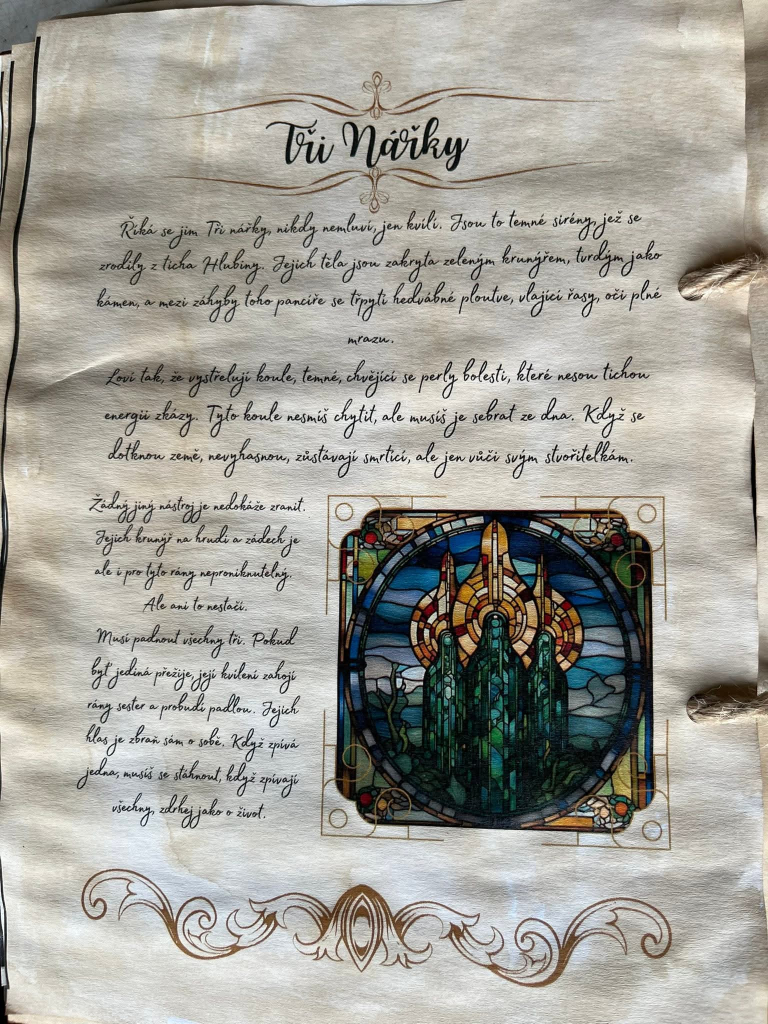 Tři Nářky
Říká se jim Tři nářky, nikdy nemluví, jen kvílí. Jsou to temné sirény, jež se
zrodily z ticha Hlubiny. Jejich těla jsou zakryta zeleným krunýřem, tvrdým jako
kámen, a mezi záhyby toho pancíře se třpytí hedvábné ploutve, vlající řasy, oči plné
mrazu.
Loví tak, že vystřelují koule, temné, chvějící se perly bolesti, které nesou tichou
energii zkázy. Tyto koule nesmíš chytit, ale musíš je sebrat ze dna. Když se
dotknou země, nevyhasnou, zůstávají smrtící, ale jen vůči svým stvořitelkám.
Žádný jiný nástroj je nedokáže zranit.
Jejich krunýř na hrudi a zádech je
ale i pro tyto rány neproniknutelný.
Ale ani to nestačí.
Musí padnout všechny tři. Pokud
byť jediná přežije, její kvílení zahojí
rány sester a probudí padlou. Jejich
hlas je zbraň sám o sobě. Když zpívá
jedna, musíš se stáhnout, když zpívají
všechny, zdrhej jako o život.